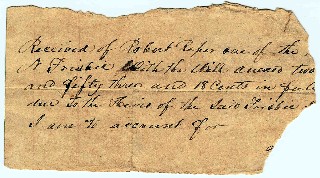 Received of Robert Roper one of the
N Frisbie with the Will anexed two
and fifty three and 18 Cents in full
due to the Heirs of the said Frisbie
I am to account for